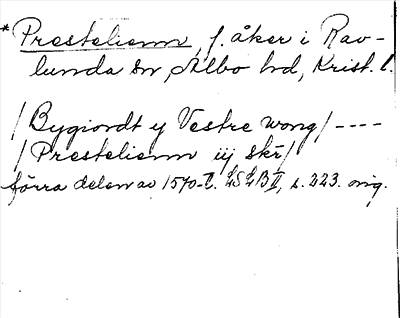 *Prestelienn, f. åker i Rav-
lunda sn, Albo hd, Krist. l.
/Bygiordt y Vestre wong/ ----
/Prestelienn iij skr/
förra delen av 1570-t. LSLB II, s. 223. orig.